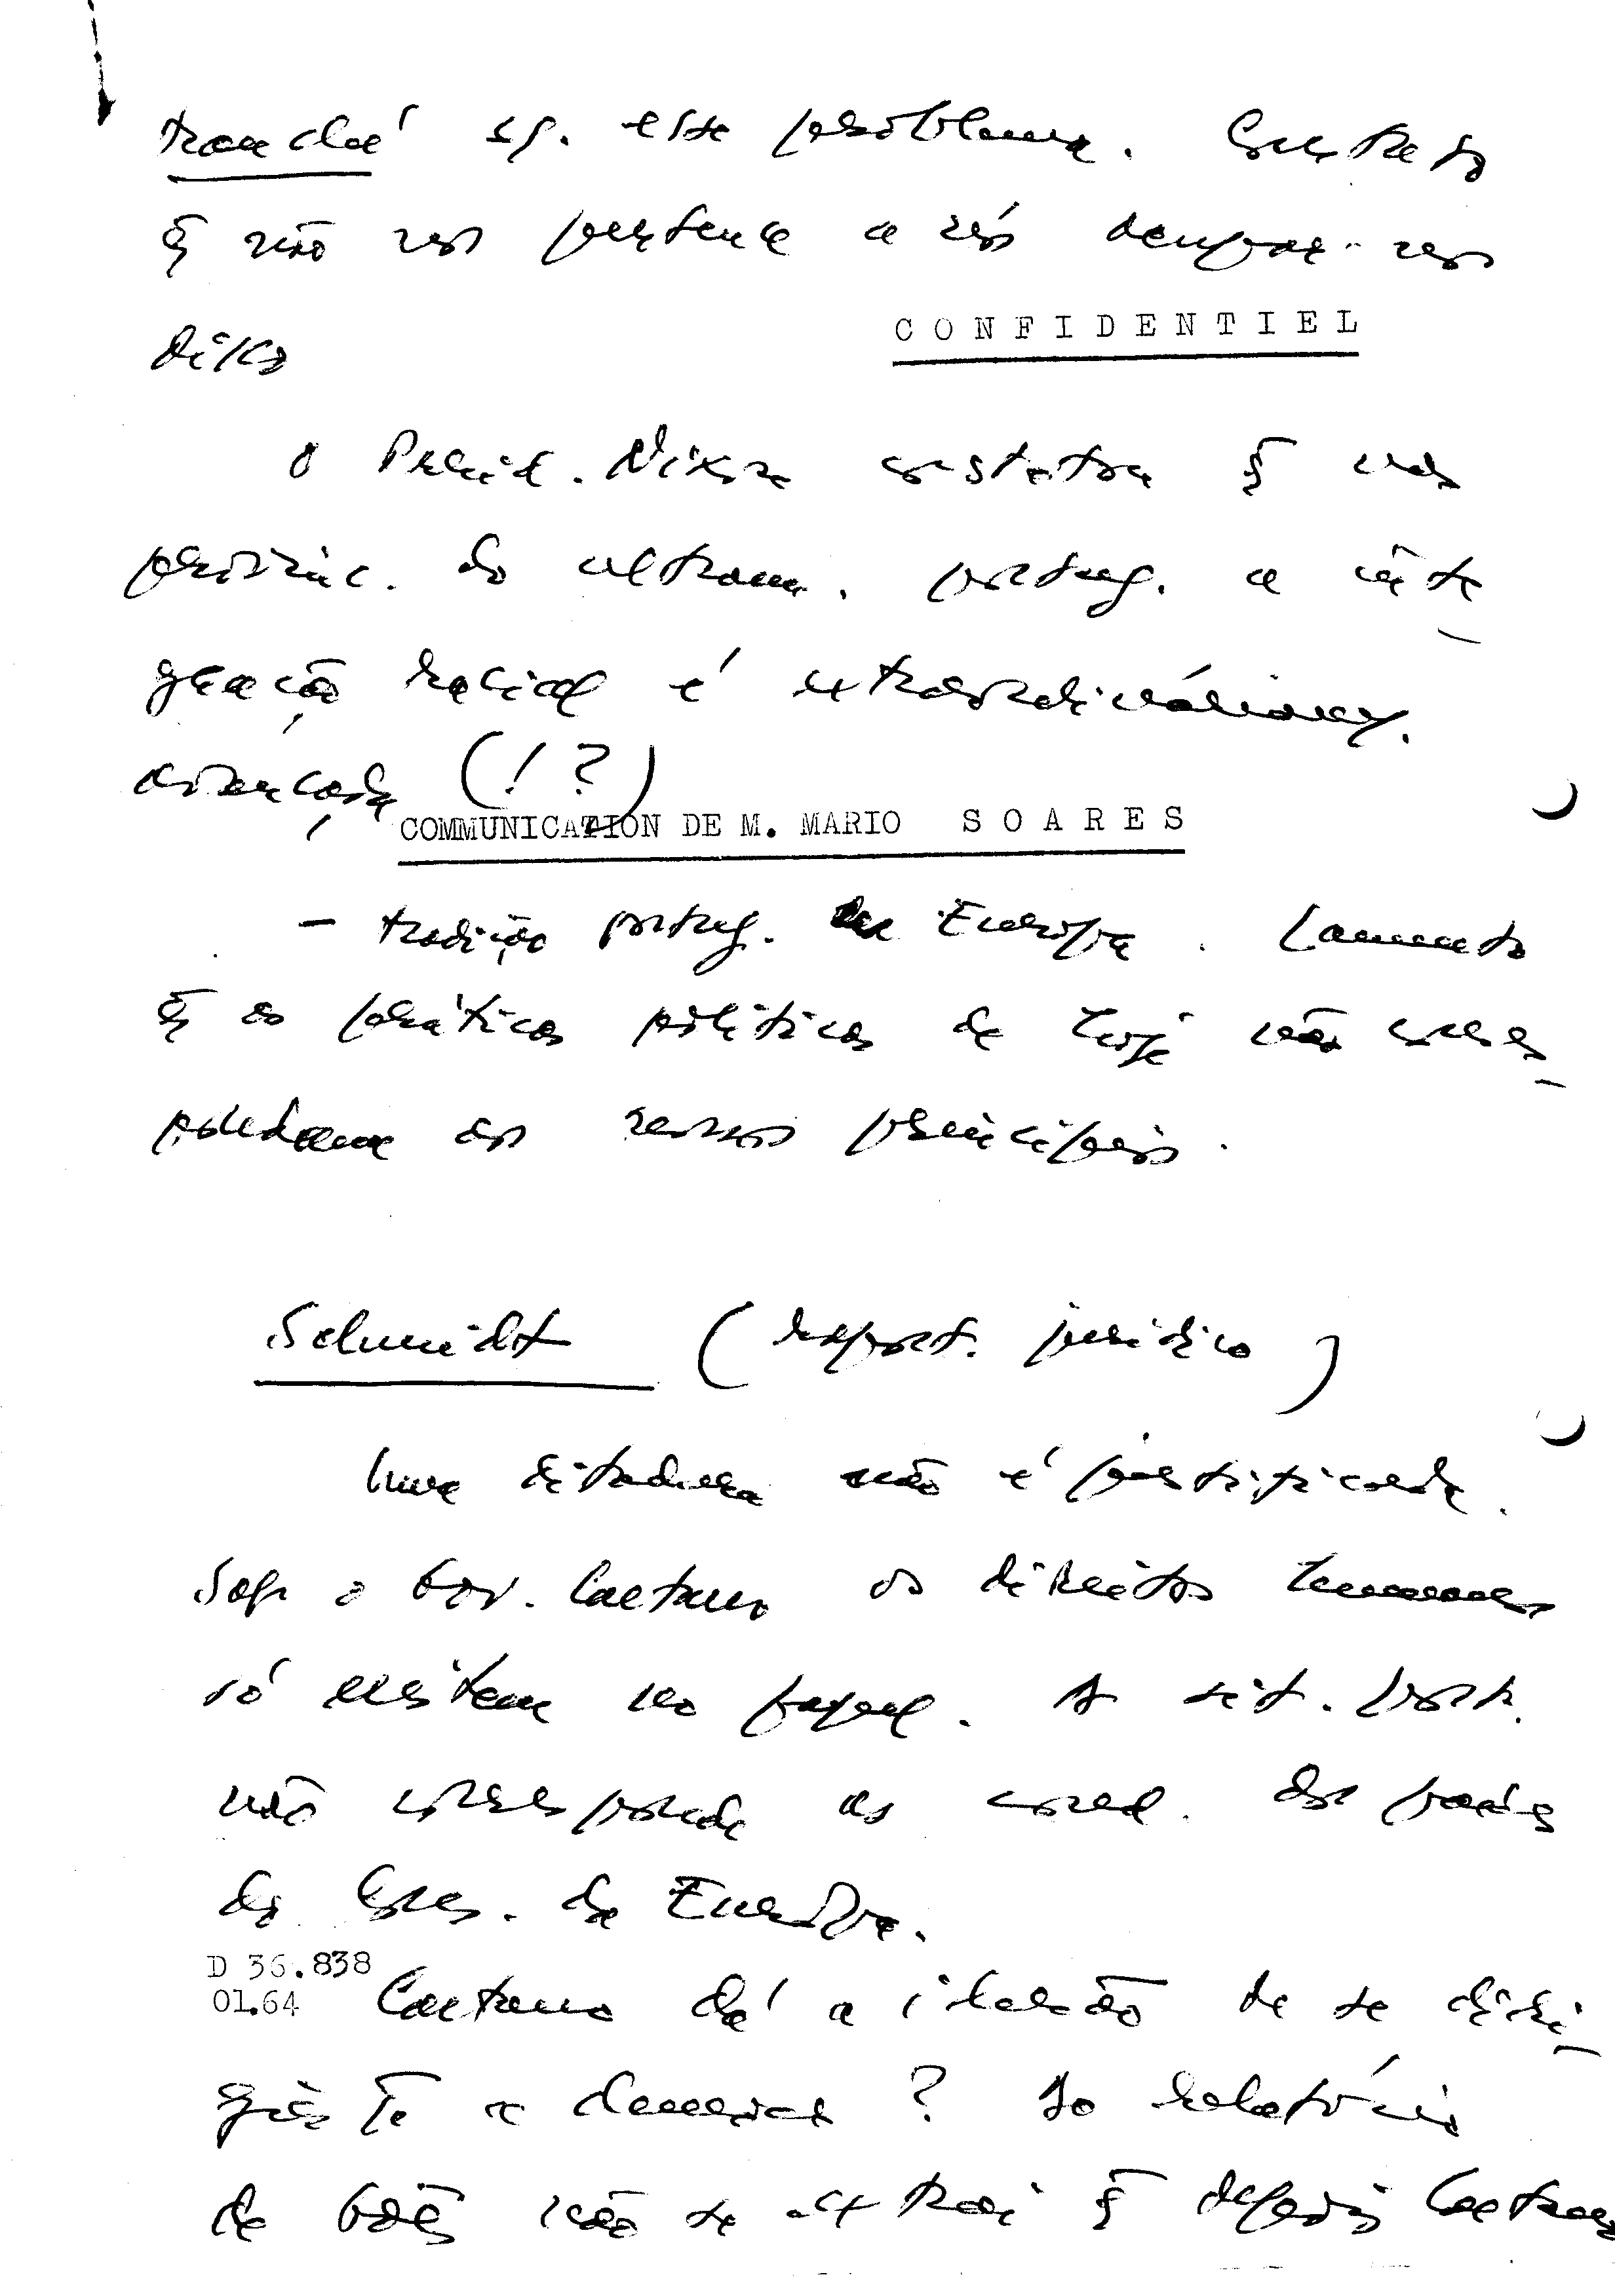 tranché sf. este problema.
q̃ não nos pertence a nós ocupar-nos
disso
CONFIDENTIEL
O Presid. Nixon constatou q̃ nas
provínc. do ultram. portug. a inte-
gração racial é extraordinariam.
avançada (!?)
COMMUNICATION DE M. MARIO SOARES
- tradição portug. na Europa. Lamento
q̃ as práticas políticas de hoje não corres-
pondam aos nossos princípios.
Schmidt (report. jurídico)
Uma ditadura não é justificada.
Sob o Gov. Caetano os direitos humanos
só existem no papel. A sit. port.
não corresponde às cond. dos países
do Cons. da Europa.
D 36.838
01.64
Caetano dá a ilusão de se diri-
gir p̃ a democr? Do relatório
de não se extrai q̃ depois Caetano